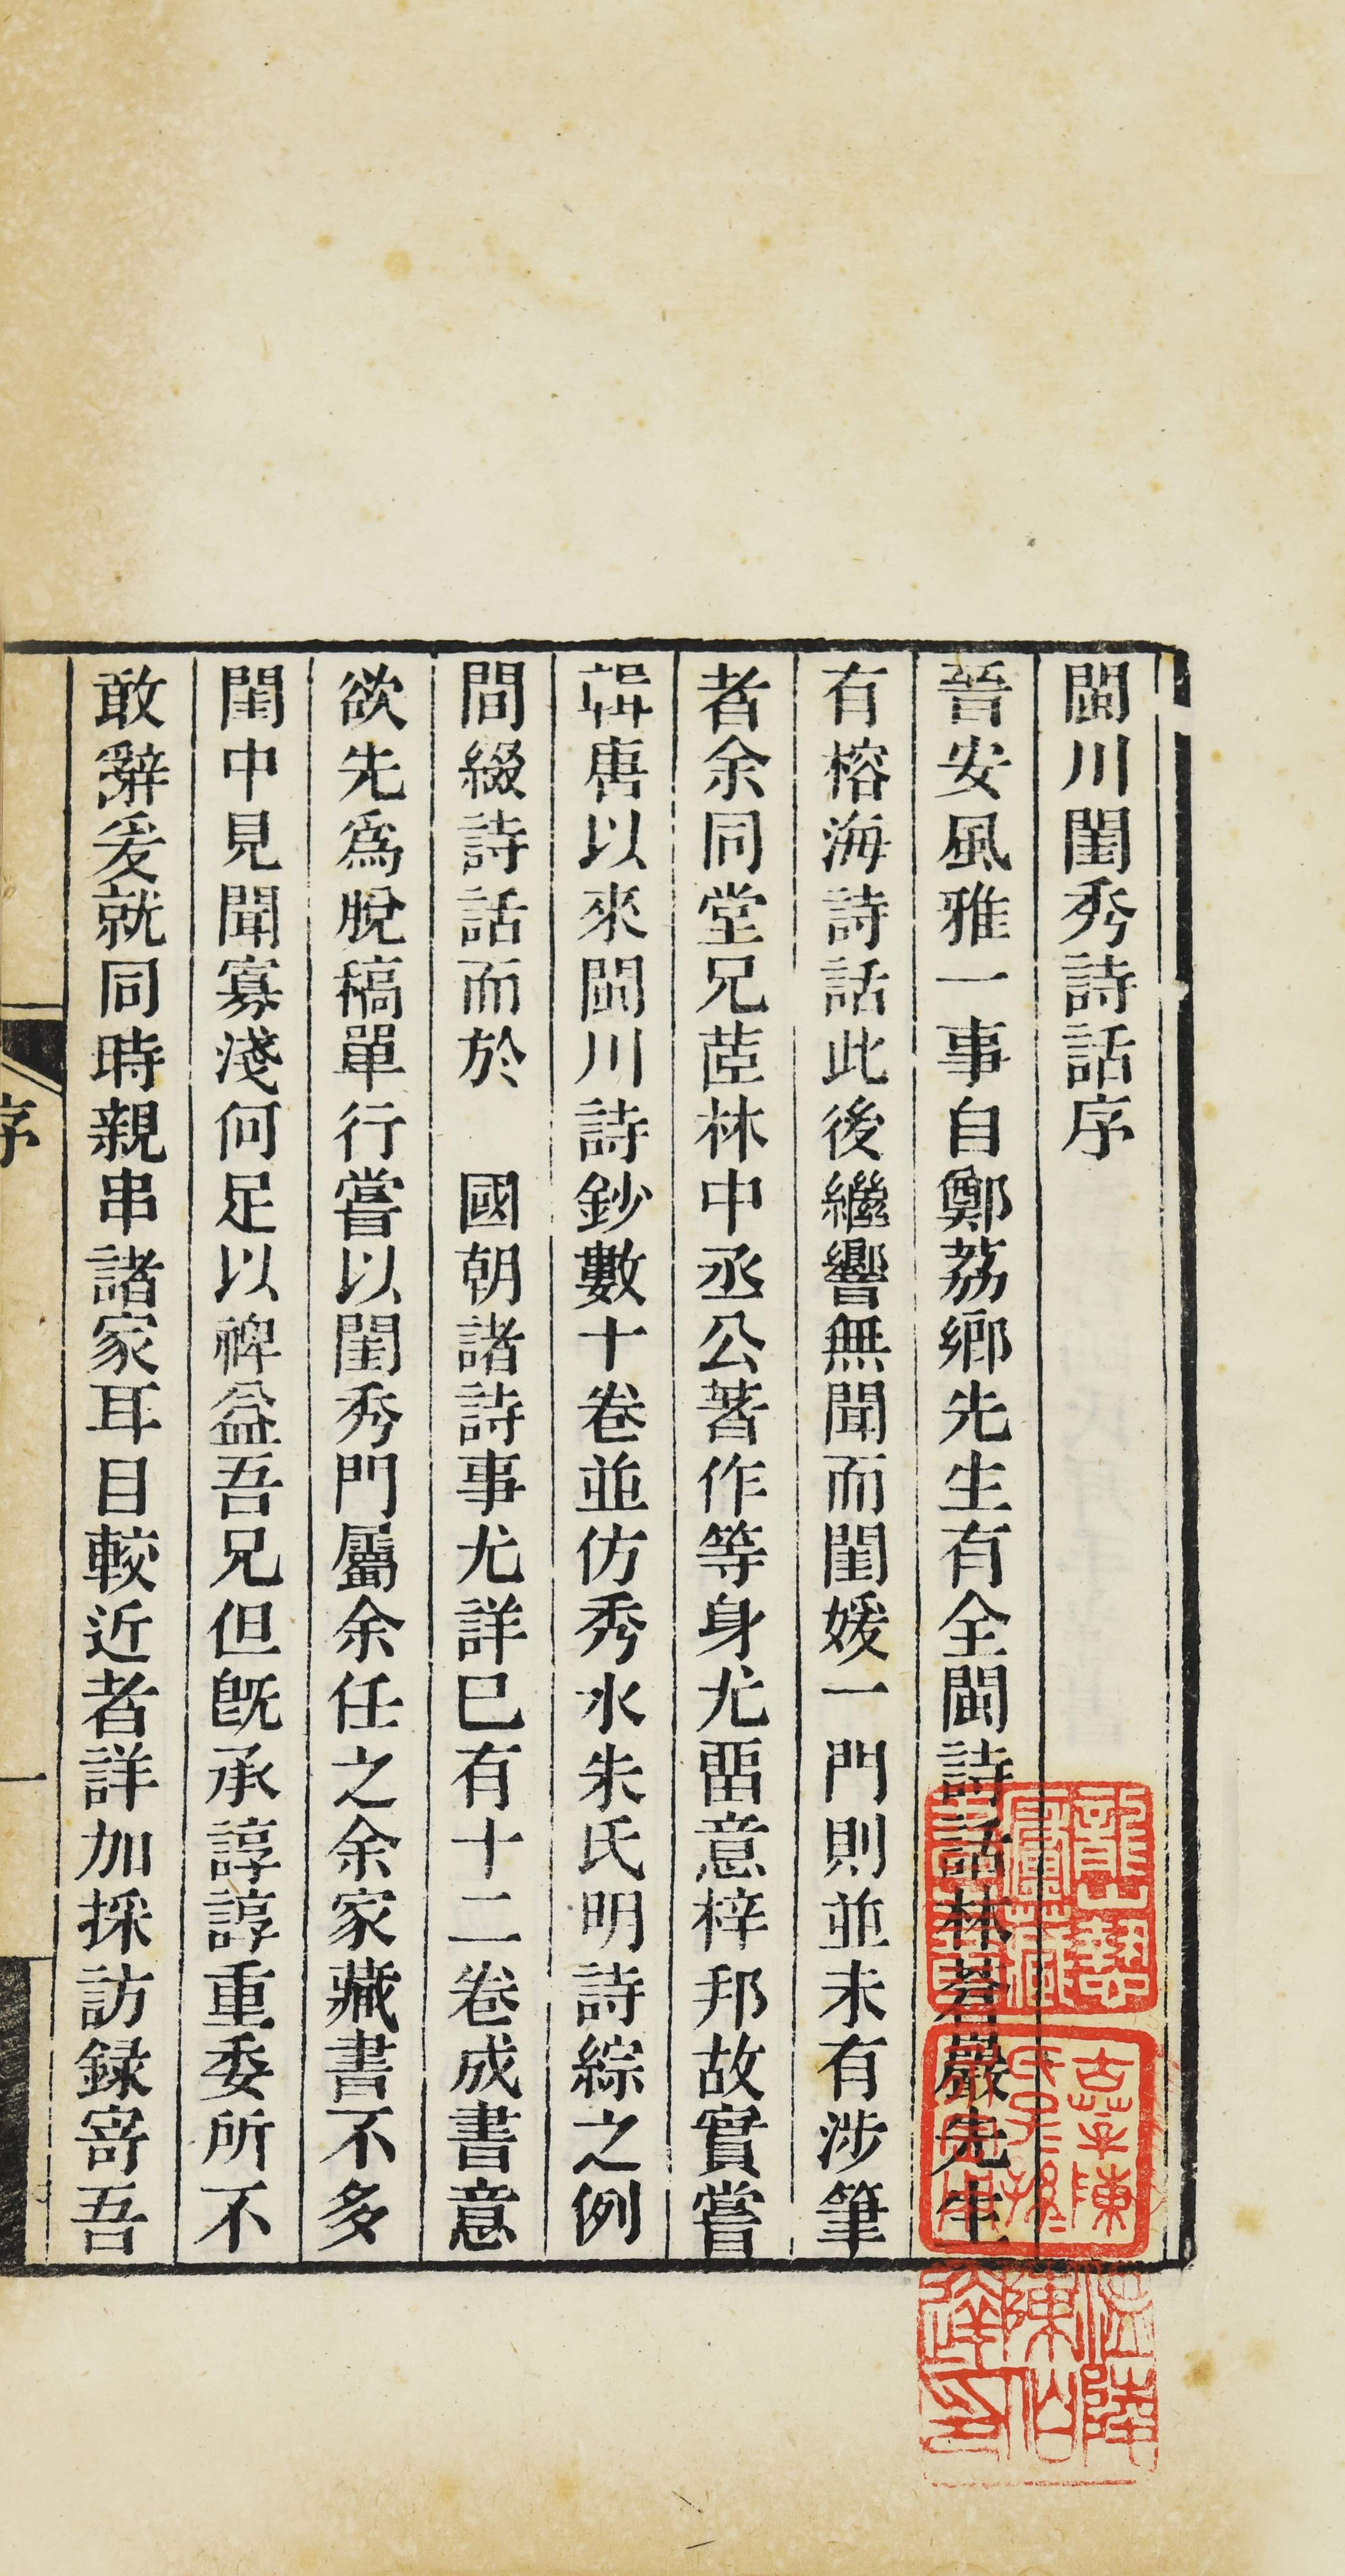 閩川閨秀詩話序
晉安風雅一事自鄭荔鄉先生有全閩詩話林蒼巖先生
有榕海詩話此後繼響無聞而閨媛一門則並未有涉筆
者余同堂兄茝林中丞公著作等身尤畱意梓邦故實嘗
輯唐以來閩川詩鈔數十卷並仿秀水朱氏明詩綜之例
間綴詩話而於　國朝諸詩事尤詳已有十二卷成書意
欲先爲脫稿單行嘗以閨秀門屬余任之余家藏書不多
閨中見聞寡淺何足以裨益吾兄但旣承諄諄重委所不
敢辭爰就同時親串諸家耳目較近者詳加採訪録寄吾
序
一